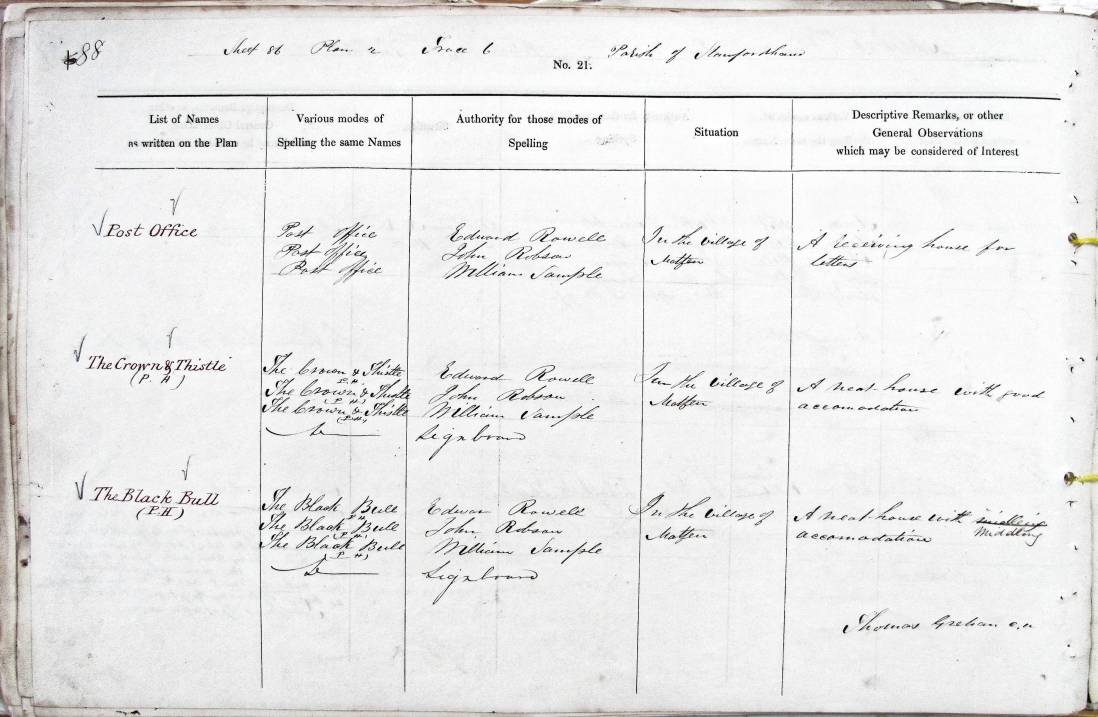 88
Sheet 86 Plan 2 Trace 6 Parish of Stamfordham
No. 21.
List of Names
as written on the Plan
Various modes of
Spelling the same Names
Authority for those modes of
Spelling
Situation
Descriptive Remarks, or other
General Observations
which may be considered of Interest
Post Office
Post office
Post office
Post office
Edward Rowell
John Robson
William Sample
In the village of
Matfen
A receiving house for
letters
The Crown & Thistle
(P. H)
The Crown & Thistle
P. H.
The Crown & Thistle
(P. H)
The Crown & Thistle
(P. H.)
Edward Rowell
John Robson
William Sample
Signboard
In the village of
Matfen
A neat house with good
accomodation
The Black Bull
(P. H)
The Black Bull
P H
The Black Bull
(P. H.)
The Black Bull
(P H)
Edwar Rowell
John Robson
William Sample
Signboard
In the village of
Matfen
A neat house with
Middling
accomodation
Thomas Grehan c.a